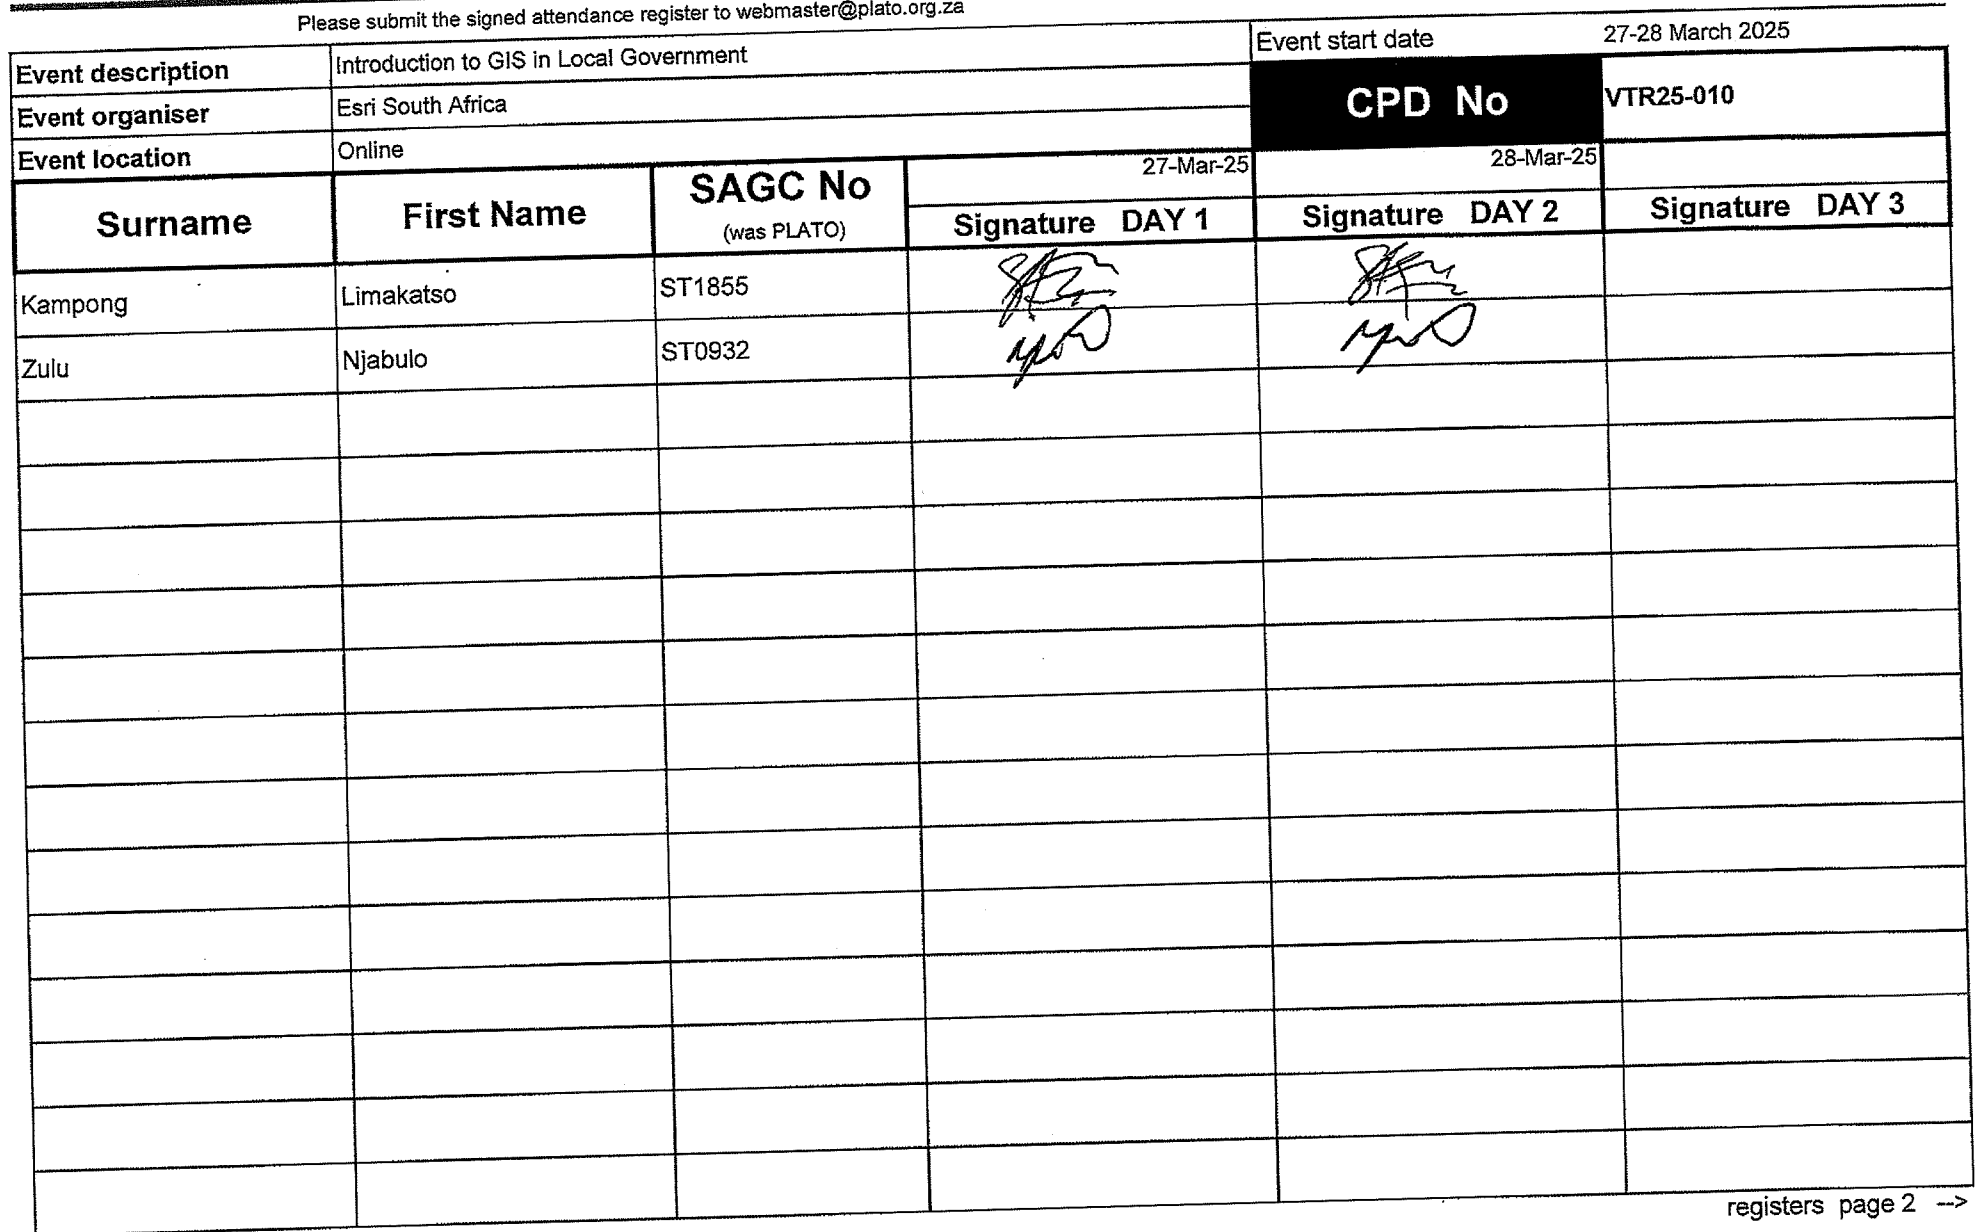 Please submit the signed attendance register to webmaster@plato.org.za
Event description Introduction to GIS in Local Government Event start date 27-28 March 2025
Event organiser Esri South Africa CPD No VTR25-010
Event location Online
27-Mar-25 28-Mar-25
Surname First Name SAGC No (was PLATO) Signature DAY 1 Signature DAY 2 Signature DAY 3
Kampong Limakatso ST1855
Zulu Njabulo ST0932
registers page 2 -->